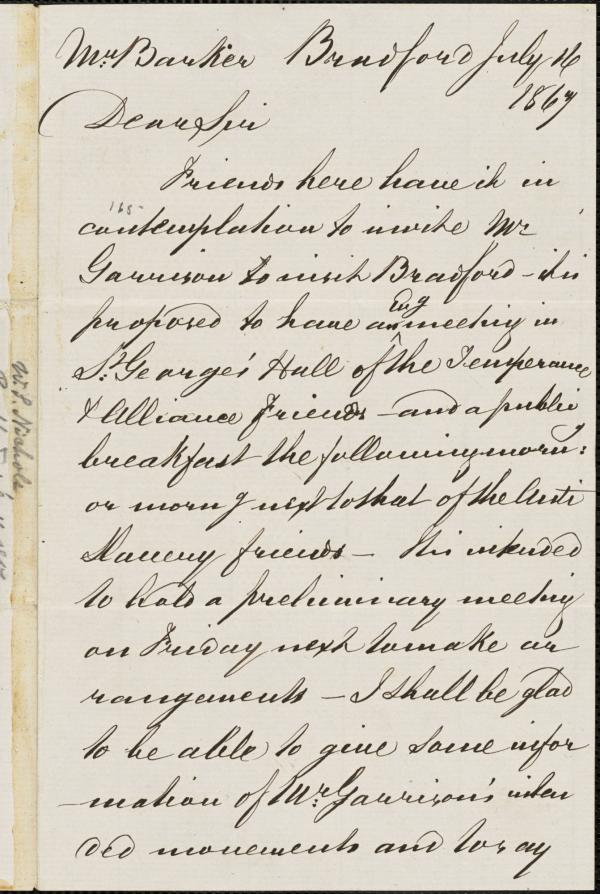 Mr. Barker Bradford July 16
1867
Dear Sir
Friends here have it in
contemplation to invite Mr
Garrison to visit Bradford - it is
proposed to have an Evg meeting in
St. George's Hall of the Temperance
& Alliance friends - and a public
breakfast the following morng:
or morng next to that of the Anti
Slavery friends - It is intended
to hold a preliminary meeting
on Friday next to make ar
rangements - I shall be glad
to be able to give some infor
-mation of Mr. Garrison's inten
ded movements and to say
W. L. Nichols